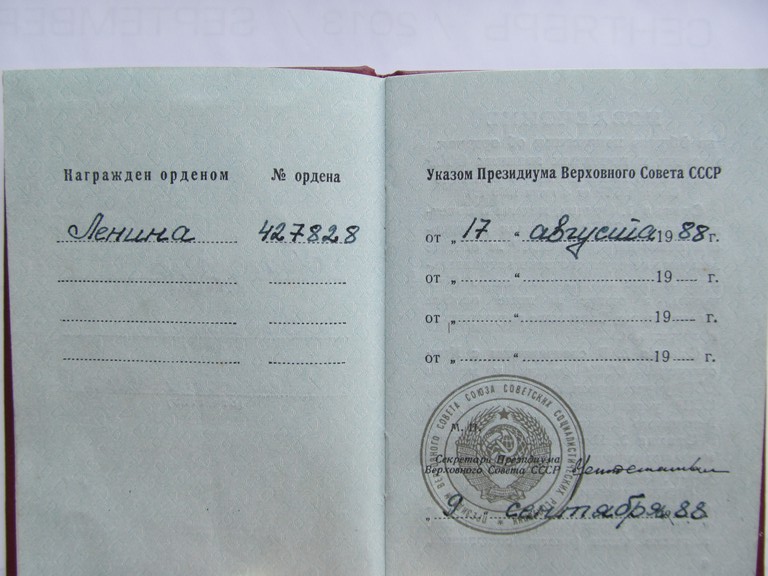 СЕНТЯБРЬ / 2013 / SEPTEMBER
Награжден орденом № ордена
Ленина 427828
Указом Президиума Верховного Совета СССР
от „ 17 “ августа 1988 г.
от „ “ 19 г.
от „ “ 19 г.
от „ “ 19 г.
М. П.
Секретарь Президиума
Верховного Совета СССР
„ 9 “ сентября 88
ПРЕЗИДИУМ ВЕРХОВНОГО СОВЕТА СОЮЗА СОВЕТСКИХ СОЦИАЛИСТИЧЕСКИХ РЕСПУБЛИК